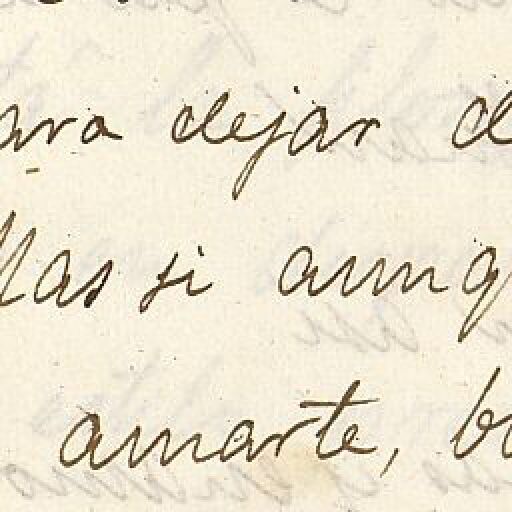 ara dejar d
Mas si aunq
amarte, b